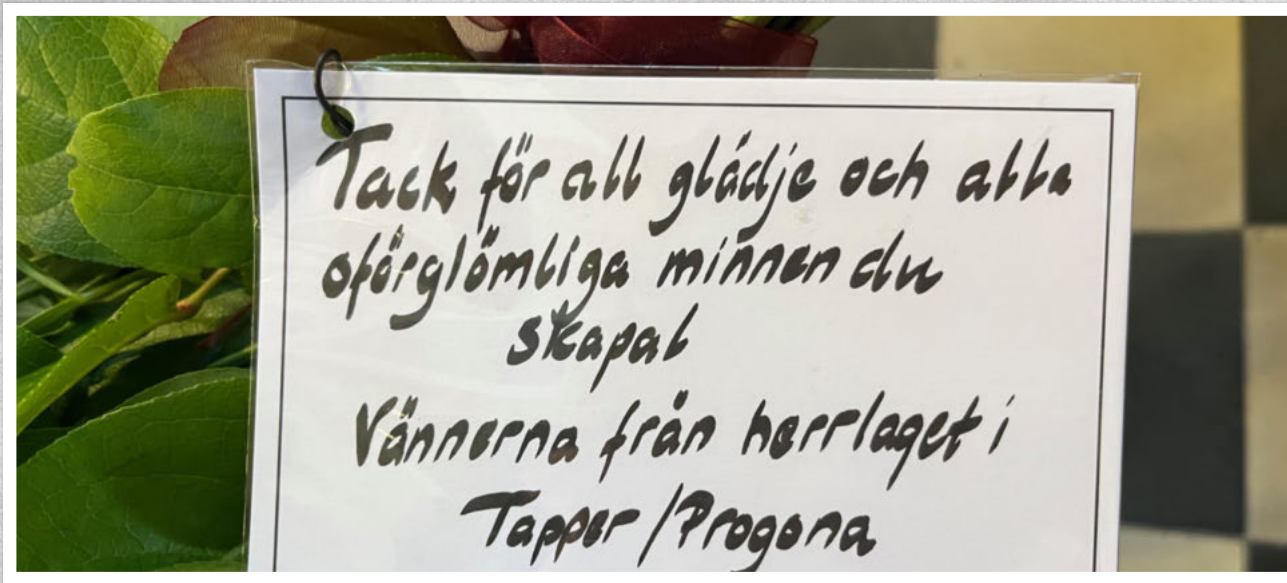 Tack för all glädje och alla
oförglömliga minnen du
skapat
Vännerna från herrlaget i
Tapper/Progona